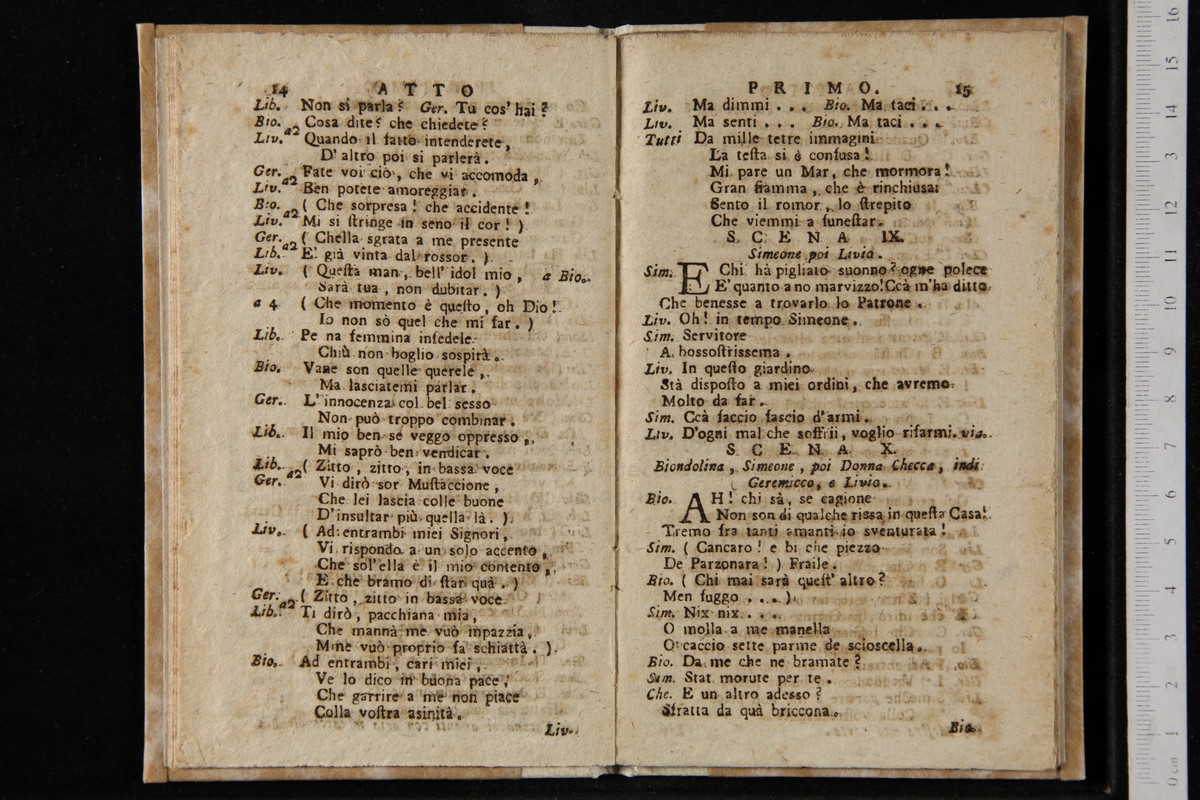 14 ATTO
Lib. Non si parla? Ger. Tu cos' hai?
Bio. Cosa dite? che chiedete?
Liv. a2 Quando il fatto intenderete,
D' altro poi si parlerà.
Ger. Fate voi ciò, che vi accomoda,
Liv. a2 Ben potete amoreggiar.
Bio. ( Che sorpresa! che accidente!
Liv. a2 Mi si ſtringe in seno il cor! )
Ger. ( Chella sgrata a me presente
Lib. a2 E' già vinta dal rossor. )
Liv. ( Queſta man, bell' idol mio, a Bio.
Sarà tua, non dubitar. )
a 4 ( Che momento è queſto, oh Dio!
Io non sò quel che mi far. )
Lib. Pe na femmina infedele
Chiù non boglio sospirà.
Bio. Vane son quelle querele,
Ma lasciatemi parlar.
Ger. L' innocenza col bel sesso
Non può troppo combinar.
Lib. Il mio ben se veggo oppresso,
Mi saprò ben vendicar.
Lib. ( Zitto, zitto, in bassa voce
Ger. a2 Vi dirò sor Muſtaccione,
Che lei lascia colle buone
D'insultar più quella là. )
Liv. ( Ad entrambi miei Signori,
Vi rispondo a un solo accento,
Che sol'ella è il mio contento,
E che bramo di ſtar quà. )
Ger. ( Zitto, zitto in bassa voce
Lib. a2 Ti dirò, pacchiana mia,
Che mannà me vuò mpazzia,
Mme vuò proprio fa schiattà. )
Bio. Ad entrambi, cari miei,
Ve lo dico in buona pace,
Che garrire a me non piace
Colla voſtra asinità.
Liv.
PRIMO. 15
Liv. Ma dimmi . . . Bio. Ma taci . . .
Liv. Ma senti . . . Bio. Ma taci . . .
Tutti Da mille tetre immagini
La teſta si è confusa!
Mi pare un Mar, che mormora!
Gran fiamma, che è rinchiusa:
Sento il romor, lo ſtrepito
Che viemmi a funeſtar.
SCENA IX.
Simeone poi Livia.
Sim. E Chi hà pigliato suonno? ogne polece
E' quanto a no marvizzo! Ccà m'ha ditto
Che benesse a trovarlo lo Patrone.
Liv. Oh! in tempo Simeone.
Sim. Servitore
A bossoſtrissema.
Liv. In queſto giardino
Stà dispoſto a miei ordini, che avremo
Molto da far.
Sim. Ccà faccio fascio d'armi.
Liv. D'ogni mal che soffrii, voglio rifarmi. via.
SCENA X.
Biondolina, Simeone, poi Donna Checca, indi
Geremicco, e Livio.
Bio. AH! chi sà, se cagione
Non son di qualche rissa in queſta Casa!
Tremo fra tanti amanti io sventurata!
Sim. ( Cancaro! e bi che piezzo
De Parzonara! ) Fraile.
Bio. ( Chi mai sarà queſt' altro?
Men fuggo . . . )
Sim. Nix nix . . .
O molla a me manella
O' caccio sette parme de scioscella.
Bio. Da me che ne bramate?
Sim. Stat morute per te.
Che. E un altro adesso?
Sfratta da quà briccona.
Bio.